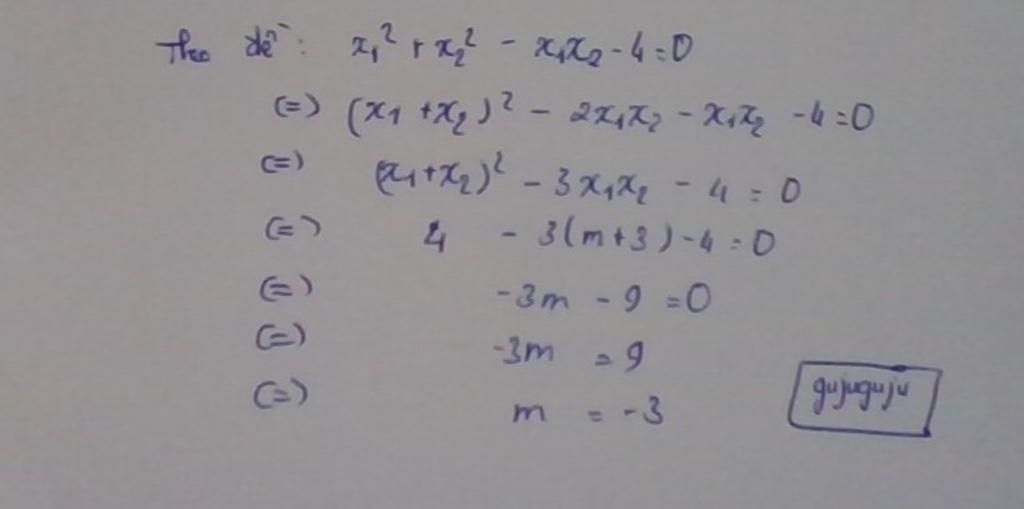 Theo đề: x₁² + x₂² - x₁x₂ - 4 = 0
(=) (x₁ + x₂)² - 2x₁x₂ - x₁x₂ - 4 = 0
(=) (x₁ + x₂)² - 3x₁x₂ - 4 = 0
(=) 4 - 3(m+3) - 4 = 0
(=) -3m - 9 = 0
(=) -3m = 9
(=) m = -3
gujuguju